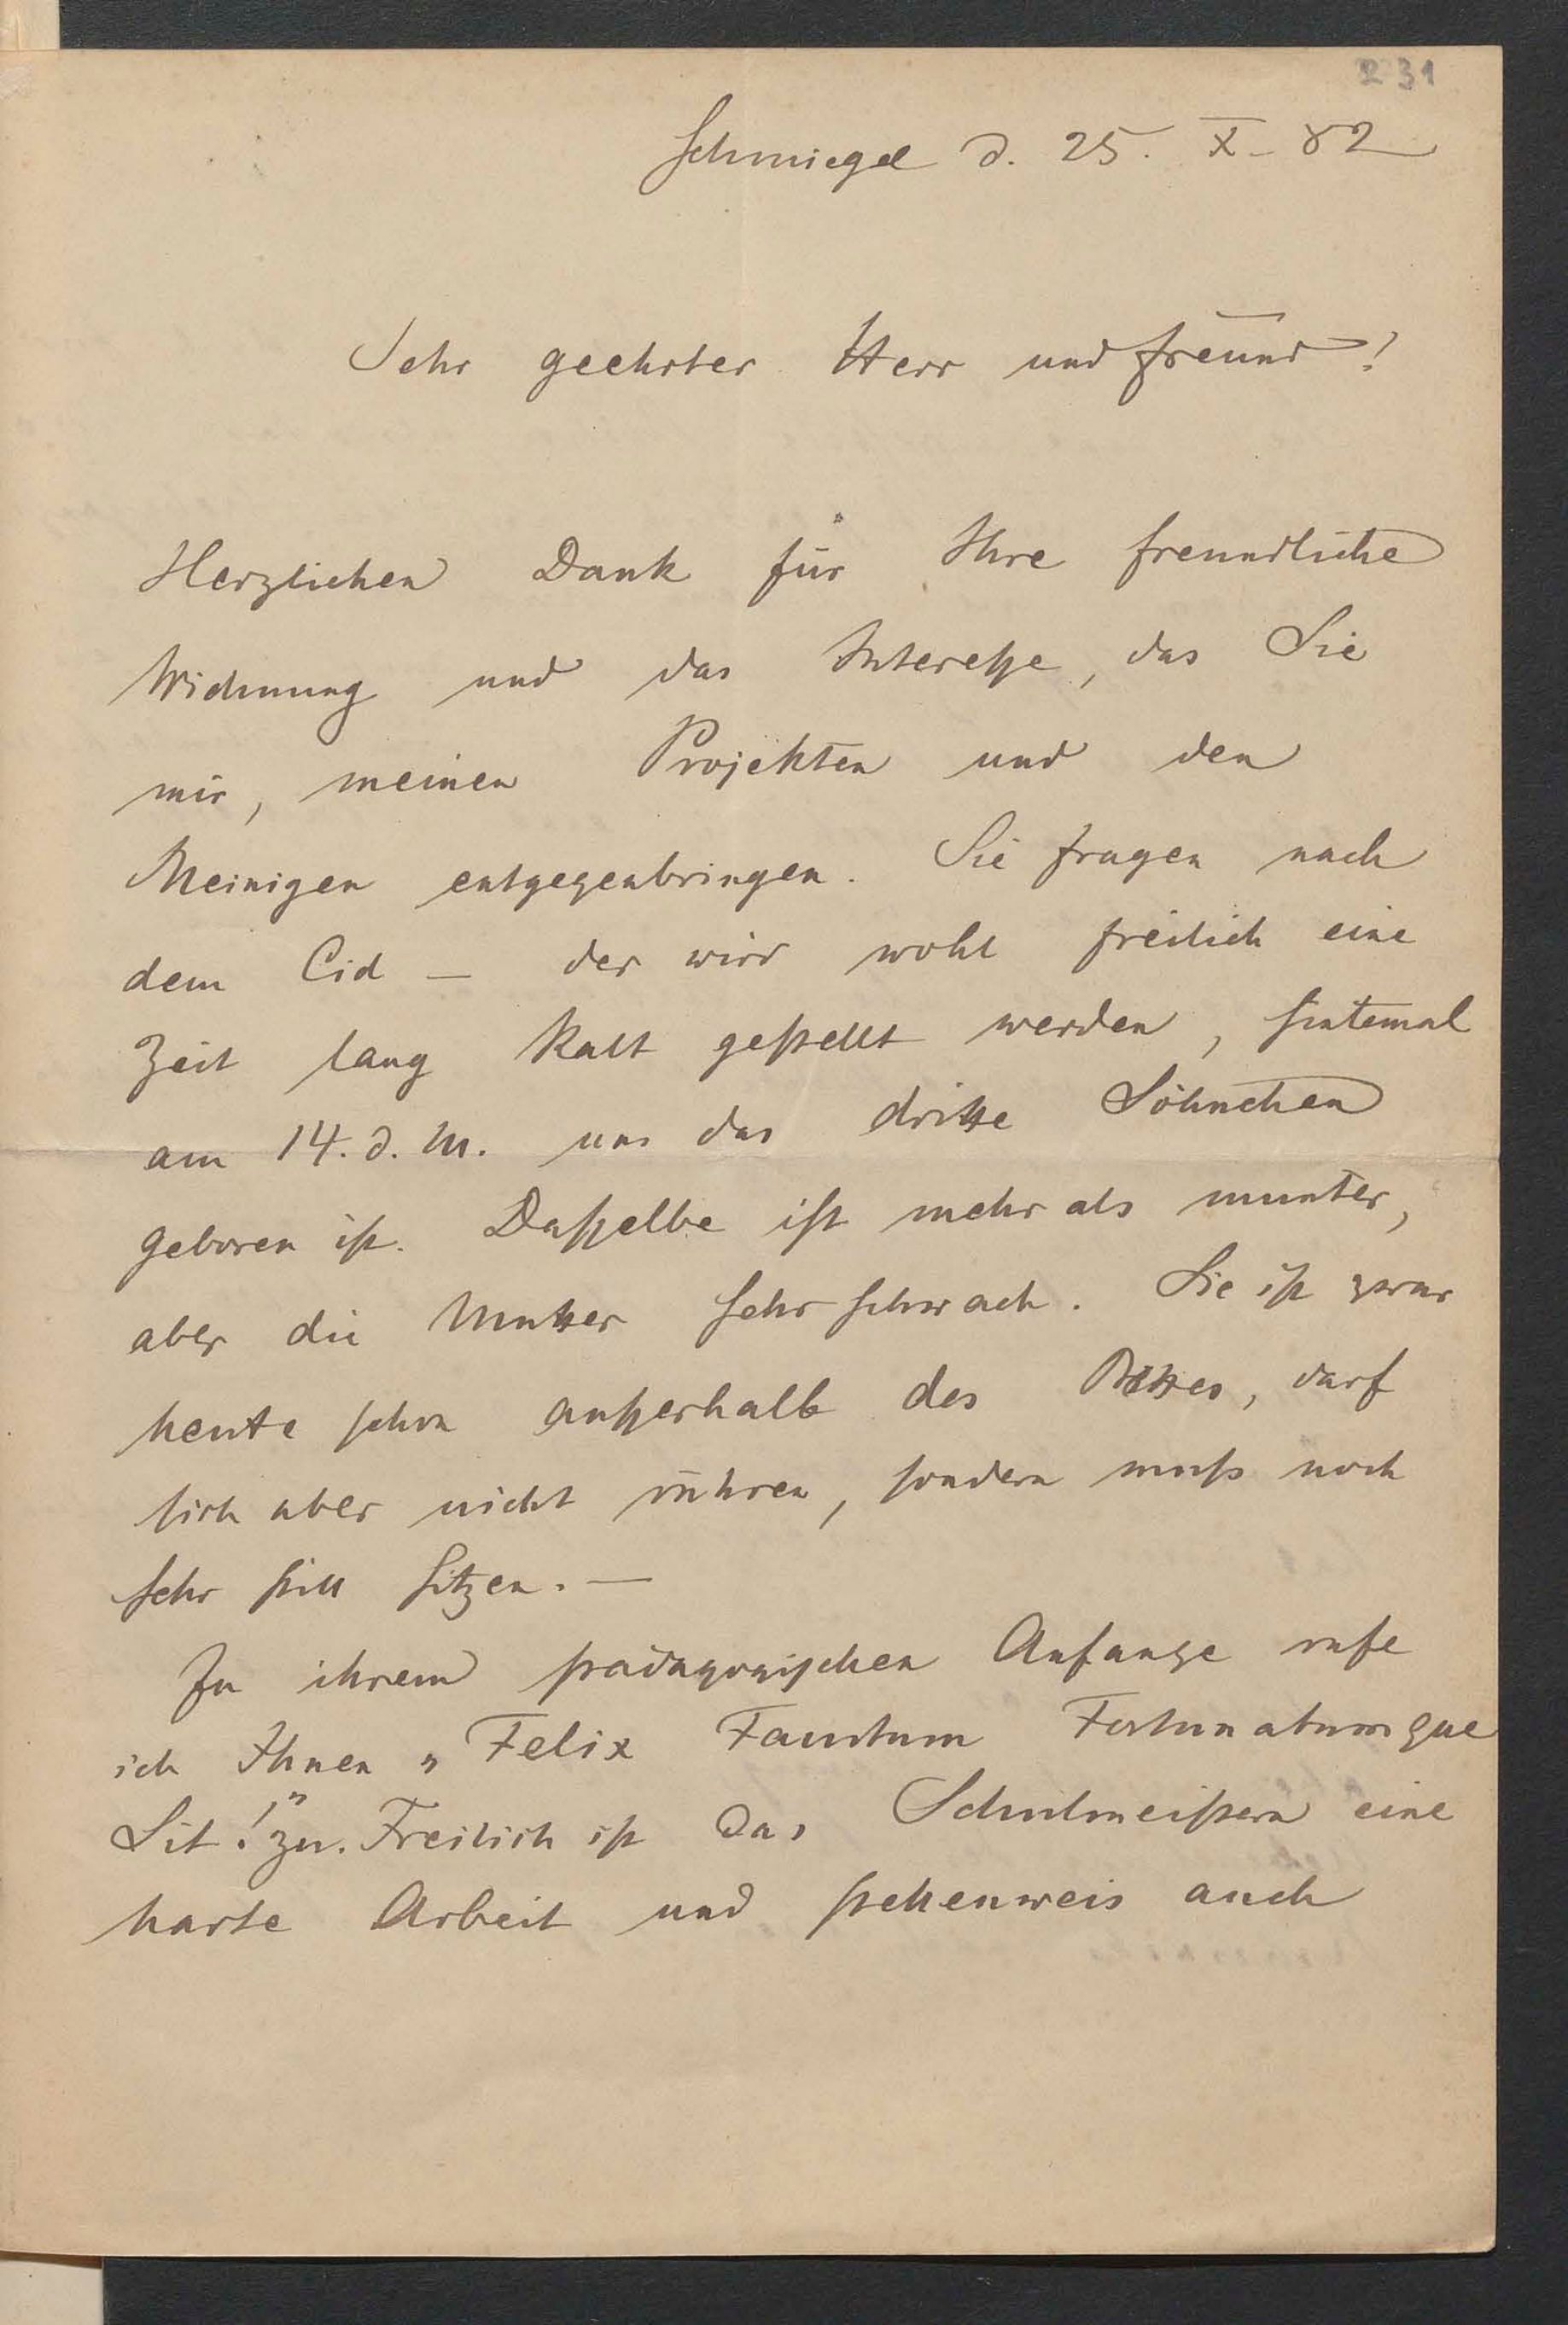 231
Schmiegel d. 25. X. 82
Sehr geehrter Herr und Freund!
Herzlichen Dank für Ihre freundliche
Widmung und das Interesse, das Sie
mir, meinen Projekten und den
Meinigen entgegenbringen. Sie fragen nach
dem Cid — der wird wohl freilich eine
Zeit lang kalt gestellt werden, sintemal
am 14. d. M. uns das dritte Söhnchen
geboren ist. Dasselbe ist mehr als munter,
aber die Mutter sehr schwach. Sie ist zwar
heute schon außerhalb des Bettes, darf
sich aber nicht rühren, sondern muß noch
sehr still sitzen. —
Zu ihrem pädagogischen Anfange rufe
ich Ihnen „Felix Faustum Fortunatumque
Sit!" zu. Freilich ist das Schulmeistern eine
harte Arbeit und stellenweis auch